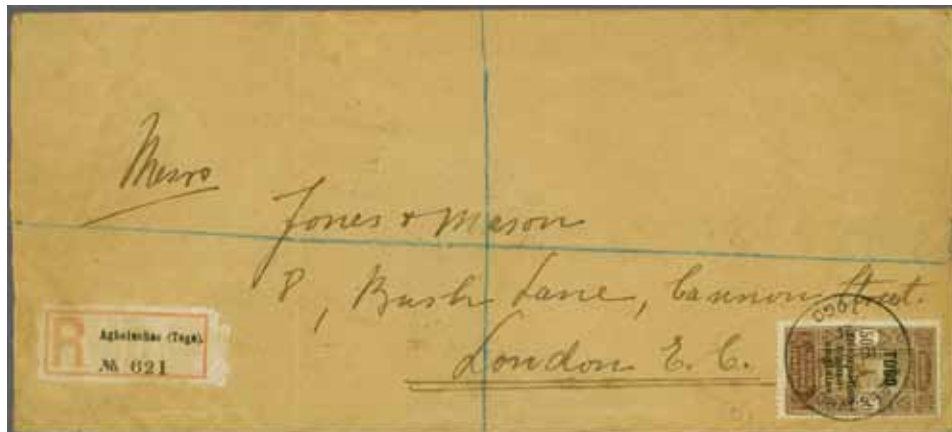 Messrs
Jones & Mason
8, Bush Lane, Cannon Street.
London E. C.
R
Agbeluvhoe (Togo).
№ 621
TOGO
TOGO